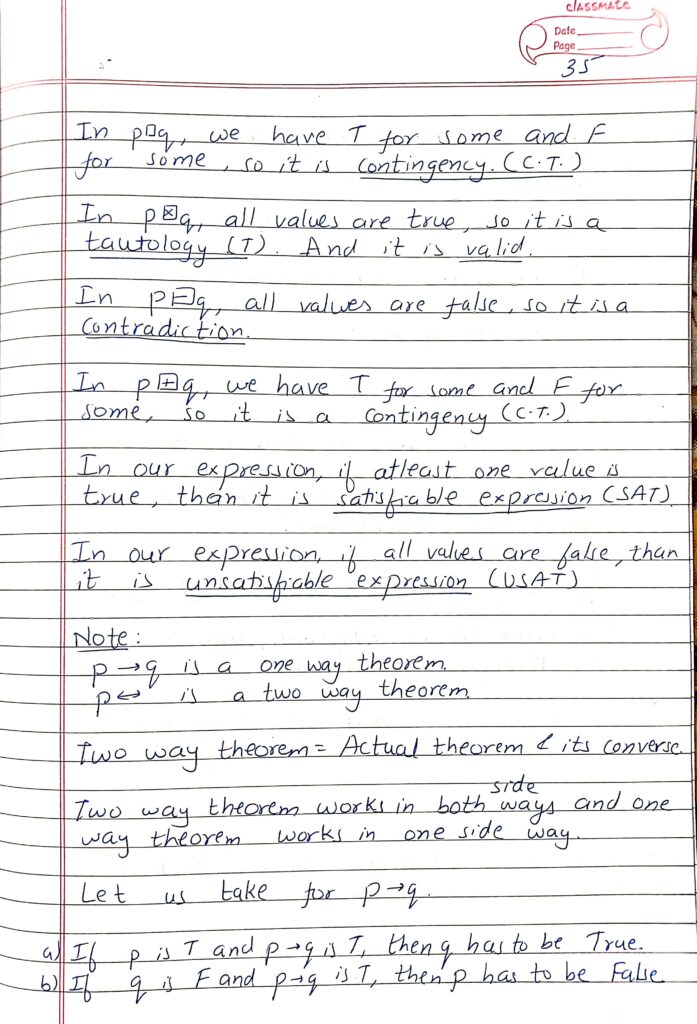 classmate
Date
Page
35
In p□q, we have T for some and F
for some, so it is contingency. (C.T.)
In p⊠q, all values are true, so it is a
tautology (T). And it is valid.
In p⊟q, all values are false, so it is a
Contradiction.
In p⊞q, we have T for some and F for
some, so it is a contingency (C.T.).
In our expression, if atleast one value is
true, than it is satisfiable expression (SAT)
In our expression, if all values are false, than
it is unsatisfiable expression (USAT)
Note:
p→q is a one way theorem.
p↔ is a two way theorem.
Two way theorem = Actual theorem & its converse.
side
Two way theorem works in both ways and one
way theorem works in one side way.
Let us take for p→q.
a) If p is T and p→q is T, then q has to be True.
b) If q is F and p→q is T, then p has to be False